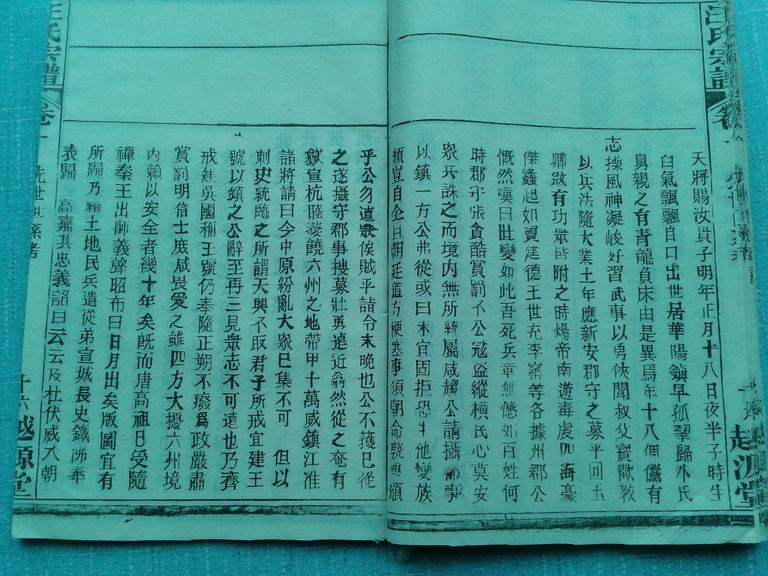 汪氏宗譜
天將賜汝貴子明年正月十八日夜半子時生
白氣飄飄自口出世居華陽鎮早孤挈歸外氏
舅親之有青龍負床由是異焉年十八個儻有
志操風神凝峻好習武事以勇俠聞叔父寶歡教
以兵法隋大業七年應新安郡守之募平回玉
卿鼓有功眾皆附之時煬帝南遊毒虐四海豪
傑蠭起如竇建德王世充李密等各據州郡公
慨然嘆曰世變如此吾死兵革無憾如百姓何
時郡守張貪酷賞罰不公寇盜縱橫民心莫安
眾兵誅之而境內無所統屬咸趨公請攝郡事
以鎮一方公弗從或曰未宜固拒恐生他變族
頑豈自企且朝廷道方梗塞事須朝命孰與煩
乎公勿道眾俟賊平請命未晚也公不獲已從
之遂攝守郡事搜募壯勇遠近翕然從之奄有
歙宣杭睦婺饒六州之地帶甲十萬威鎮江淮
諸將請曰今中原紛亂大眾已集不可 但以
刺史統臨之所謂天與不取君子所戒宜建王
號以鎮之公辭至再三見眾志不可違也乃齊
戒建吳國稱王號仍奉隨正朔不癈爲政嚴肅
賞罰明信士庶咸畏愛之雖四方大擾六州境
內賴以安全者幾十年矣既而唐高祖曰受隨
禪秦王出師義聲昭布曰日月出矣版圖宜有
所歸乃籍土地民兵遣從弟宣城長史鐵佛奉
表歸 高嘉其忠義詔曰云云及杜伏威入朝
汪氏宗譜
卷一
十六
越源堂
越源堂